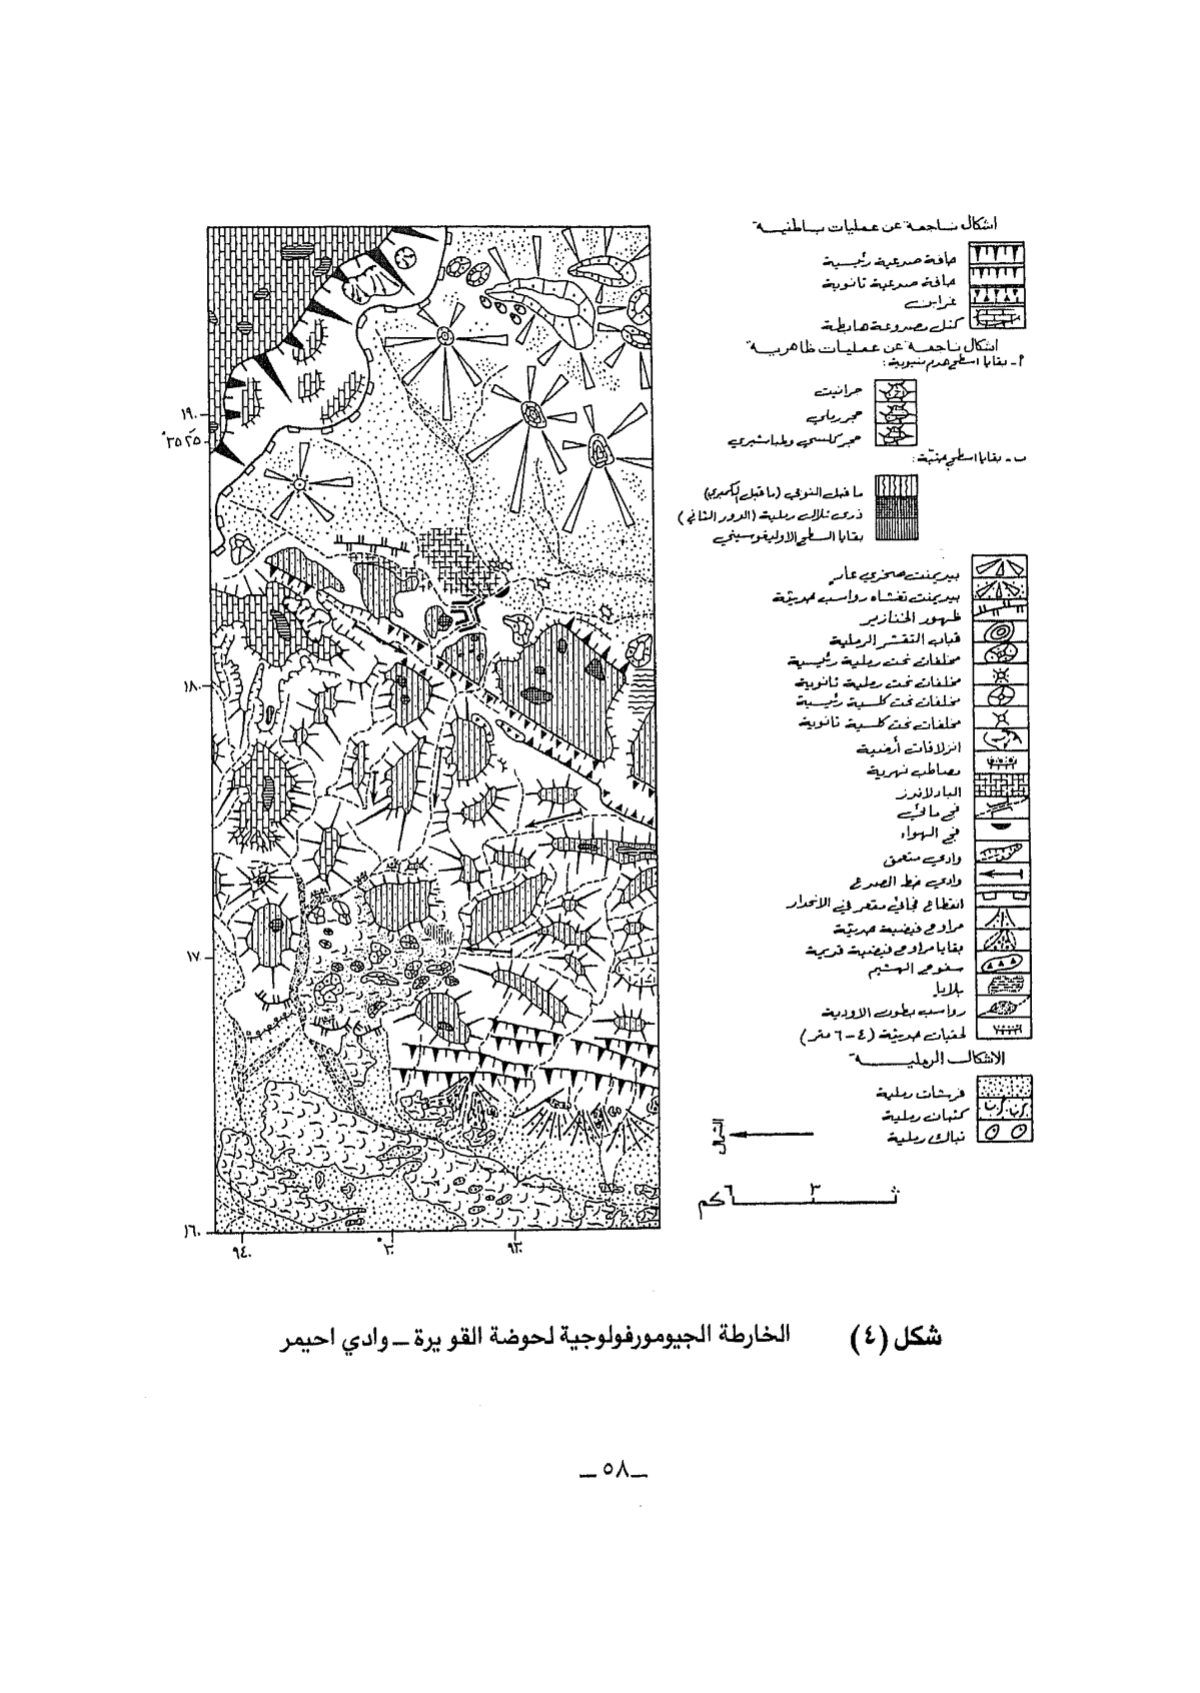 اشكال ناجمة عن عمليات باطنية
حافة صدعية رئيسية
حافة صدعية ثانوية
غرابن
كتل مصدوعة هابطة
اشكال ناجمة عن عمليات ظاهرية
أ - بقايا اسطح هدم بنيوية :
جرانيت
حجر رملي
حجر كلسي وطباشيري
ب - بقايا اسطح حتية :
ما قبل النوبي (ما قبل الكمبري)
ذرى تلال رملية (الدور الثاني)
بقايا السطح الاوليغوسيني
بيديمنت صخري عار
بيديمنت تغشاه رواسب حديثة
ظهور الخنازير
قباب التقشر الرملية
مخلفات نحت رملية رئيسية
مخلفات نحت رملية ثانوية
مخلفات نحت كلسية رئيسية
مخلفات نحت كلسية ثانوية
انزلاقات أرضية
مصاطب نهرية
البادلاندز
فج مائي
فج الهواء
وادي متعمق
وادي خط الصدع
انقطاع فجائي مقعر في الانحدار
مراوح فيضية حديثة
بقايا مراوح فيضية قديمة
سفوح الهشيم
بلايا
رواسب بطون الاودية
لحقيات حديثة (٤-٦ متر)
الاشكال الرملية
فرشات رملية
كثبان رملية
نباك رملية
الشمال
٦كم ٣
١٩٠
٣٥ ٢٥°
١٨٠
١٧
١٦٠
٩٤٠ ٣٠° ٩٣٠
شكل (٤) الخارطة الجيومورفولوجية لحوضة القويرة ـ وادي احيمر
ـ ٥٨ ـ